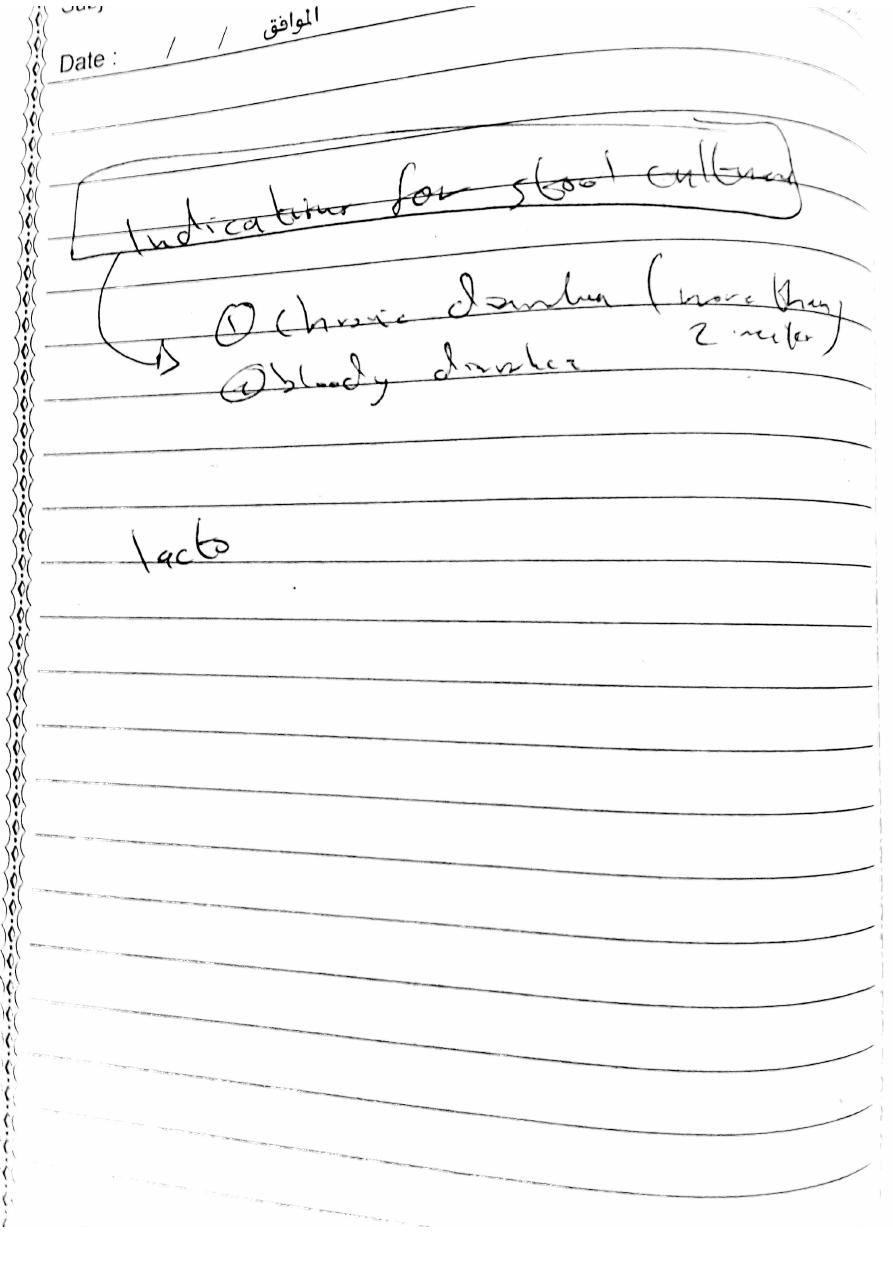 Subj
Date : / / الموافق
Indications for stool culture
① Chronic diarrhea (more than
2 weeks)
② bloody diarrhea
lacto